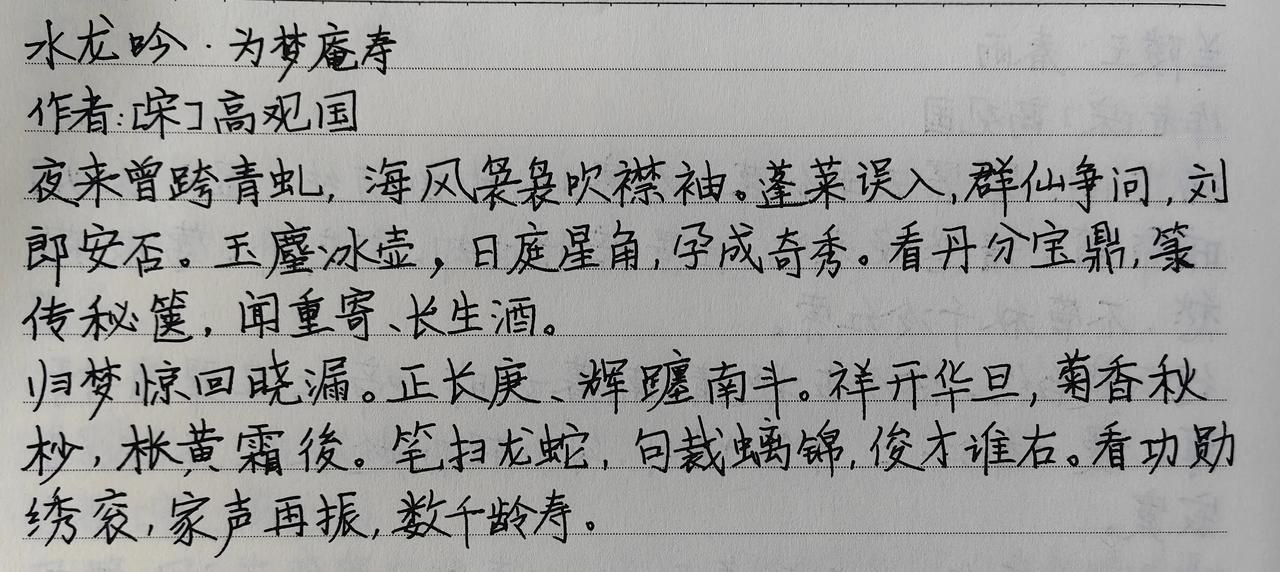 水龙吟·为梦庵寿
作者:[宋]高观国
夜来曾跨青虬,海风袅袅吹襟袖。蓬莱误入,群仙争问,刘
郎安否。玉麈冰壶,日庭星角,孕成奇秀。看丹分宝鼎,篆
传秘箧,闻重寄、长生酒。
归梦惊回晓漏。正长庚、辉躔南斗。祥开华旦,菊香秋
杪,枨黄霜後。笔扫龙蛇,句裁螭锦,俊才谁右。看功勋
绣衮,家声再振,数千龄寿。